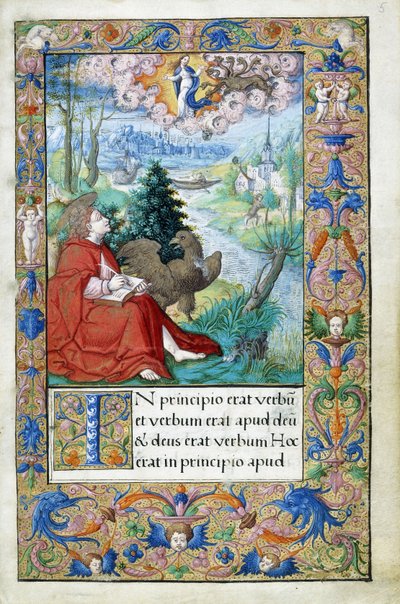 5
IN principio erat verbũ
et verbum erat apud deũ
& deus erat verbum Hoc
erat in principio apud